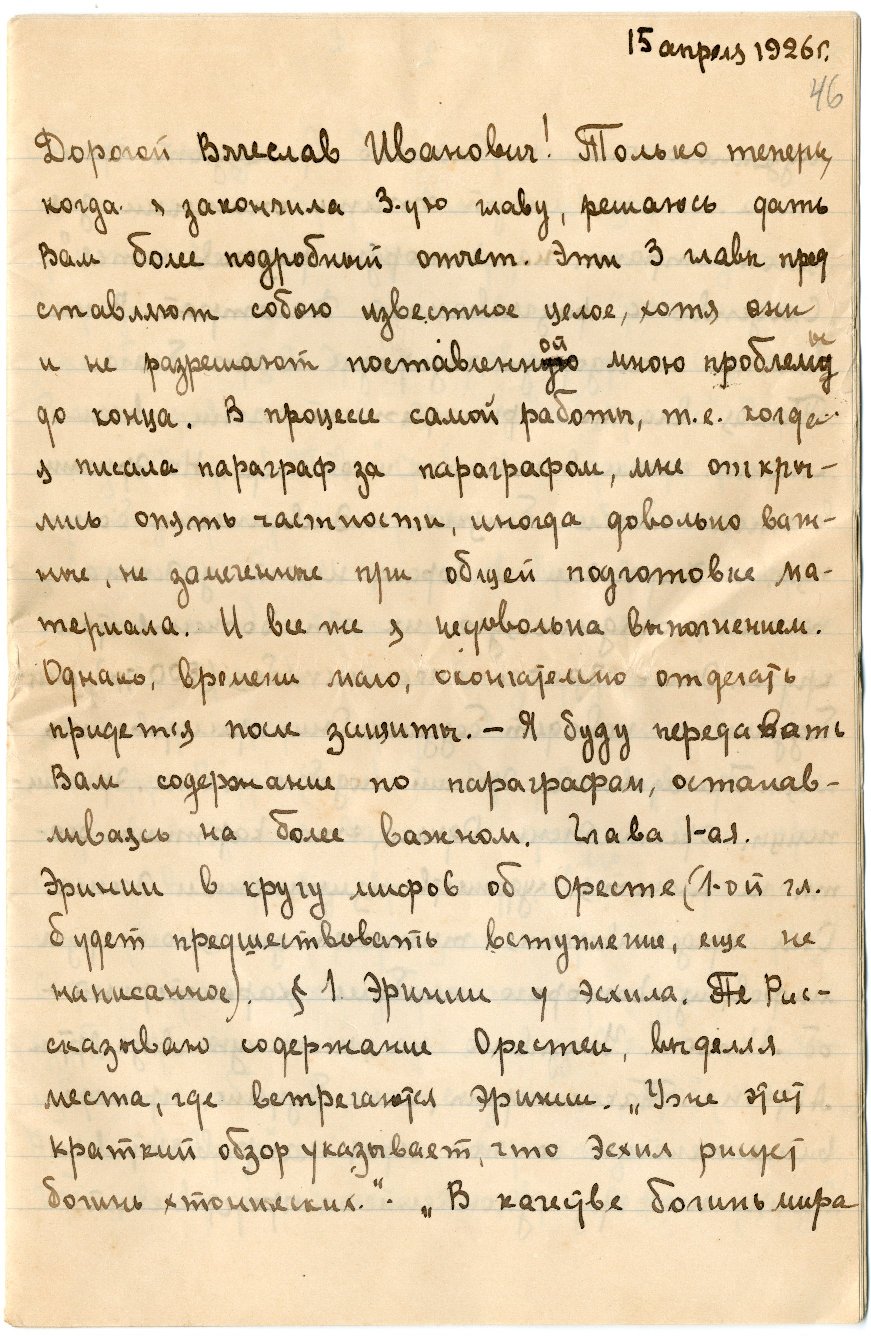 15 апреля 1926 г.
46
Дорогой Вячеслав Иванович! Только теперь,
когда я закончила 3-ую главу, решаюсь дать
Вам более подробный отчет. Эти 3 главы пред
ставляют собою известное целое, хотя они
и не разрешают поставленной мною проблемы
до конца. В процессе самой работы, т.е. когда
я писала параграф за параграфом, мне откры-
лись опять частности, иногда довольно важ-
ные, не замеченные при общей подготовке ма-
териала. И все же я недовольна выполнением.
Однако, времени мало, окончательно отделать
придется после защиты. – Я буду передавать
Вам содержание по параграфам, останав-
ливаясь на более важном. Глава 1-ая.
Эринии в кругу мифов об Оресте (1-ой гл.
будет предшествовать вступление, еще не
написанное). § 1. Эринии у Эсхила.
сказываю содержание Орестеи, выделяя
места, где встречаются Эринии. „Уже этот
краткий обзор указывает, что Эсхил рисует
богинь хтонических.“ „В качестве богинь мира